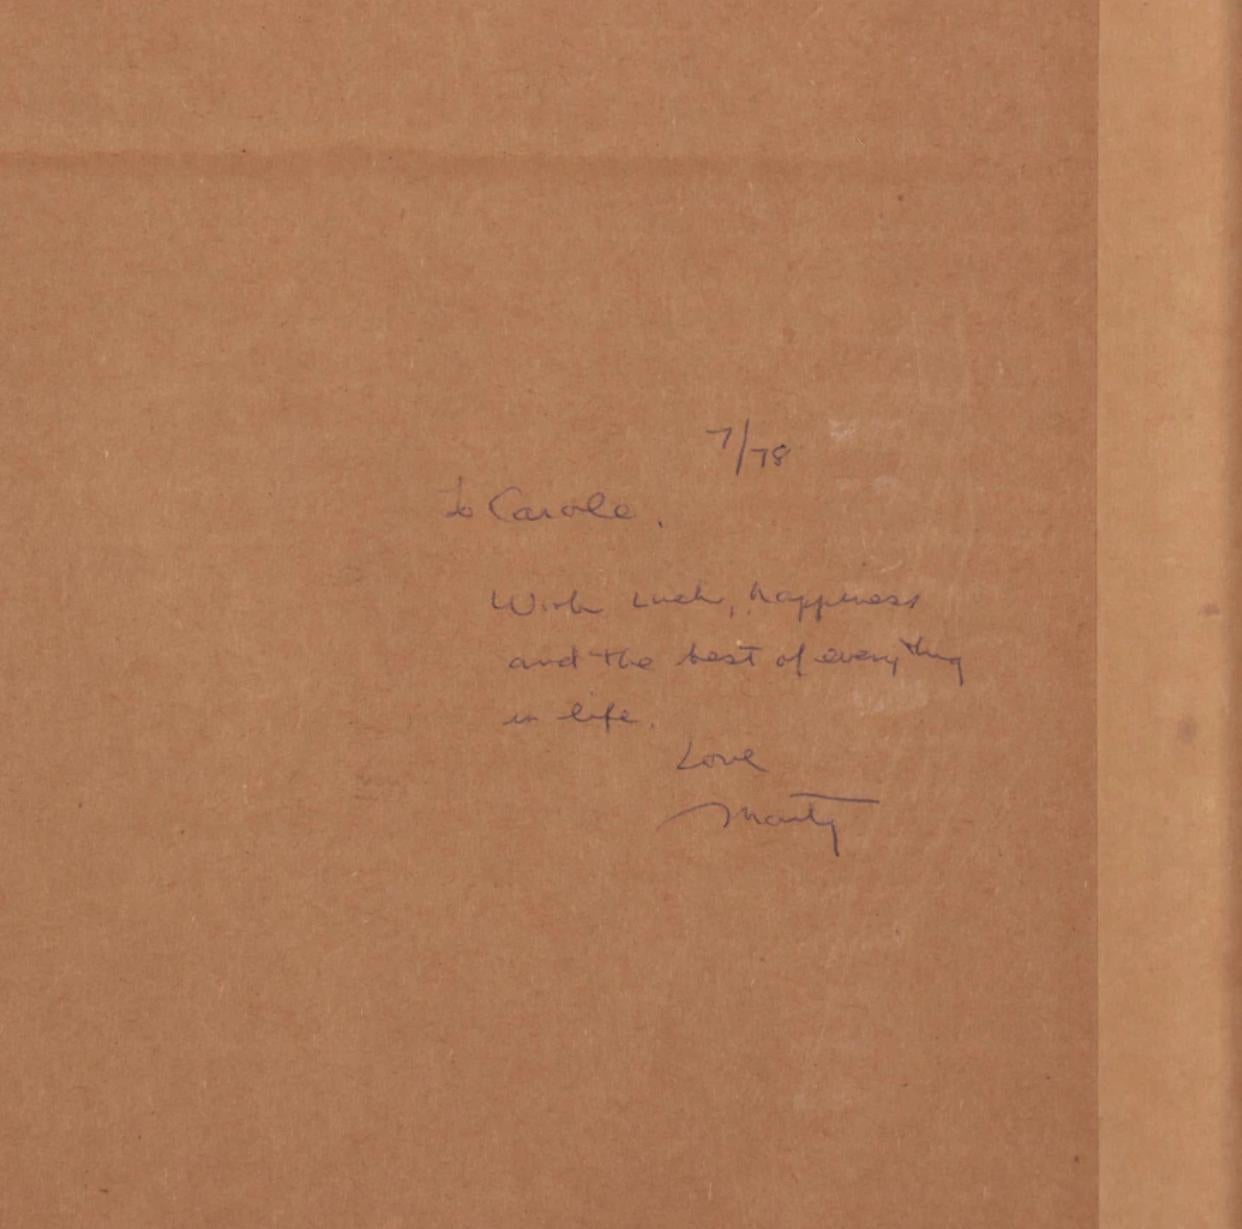 7/78
to Carole.
With luck, happiness
and the best of everything
in life.
Love
Marty